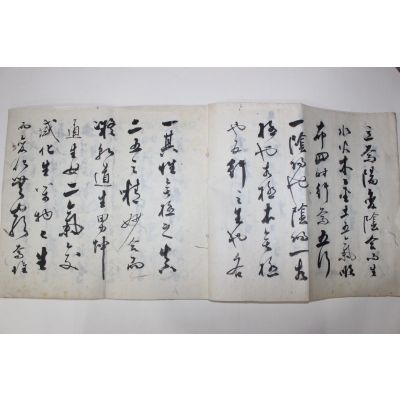 立焉陽變陰合而生
水火木金土五氣順
布四時行焉五行
一陰陽也陰陽一太
極也太極本無極
也五行之生也各
一其性無極之真
二五之精妙合而
凝乾道成男坤
道成女二氣交
感化生万物々生
而變化無窮焉惟